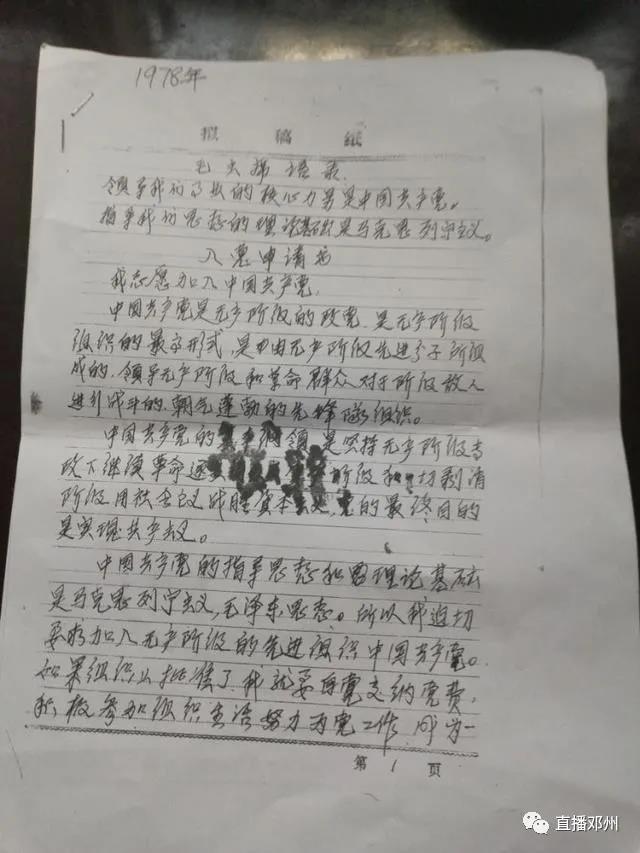 1978年
拟稿纸
毛主席语录
领导我们事业的核心力量是中国共产党。
指导我们思想的理论基础是马克思列宁主义。
入党申请书
我志愿加入中国共产党,
中国共产党是无产阶级的政党,是无产阶级
组织的最高形式,是由无产阶级先进分子所组
成的,领导无产阶级和革命群众对于阶级敌人
进行战斗的朝气蓬勃的先锋队组织。
中国共产党的基本纲领是坚持无产阶级专
政下继续革命 阶级和一切剥消
阶级用社会主义战胜资本主义,党的最终目的
是实现共产主义。
中国共产党的指导思想和 理论基础
是马克思列宁主义,毛泽东思想。所以我迫切
要求加入无产阶级的先进组织中国共产党。
如果组织上批准了,我就要向党交纳党费,
积极参加组织生活努力为党工作,成为一
第 1 页
直播邓州